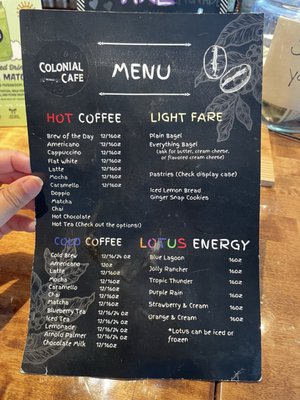 COLONIAL
CAFE
MENU
HOT COFFEE
Brew of the Day 12/16oz
Americano 12/16oz
Cappuccino 12/16oz
Flat white 12/16oz
Latte 12/16oz
Mocha 12/16oz
Caramello 12/16oz
Doppio
Matcha
Chai
Hot Chocolate
Hot Tea (Check out the options!)
LIGHT FARE
Plain Bagel
Everything Bagel
(ask for butter, cream cheese,
or flavored cream cheese)
Pastries (Check display case)
Iced Lemon Bread
Ginger Snap Cookies
COLD COFFEE
Cold Brew 12/16/24 oz
Americano 12oz
Latte 12/16oz
Mocha 12/16oz
Caramello 12/16oz
Chai 12/16oz
Matcha 12/16oz
Blueberry Tea 12/16/24 oz
Iced Tea 12/16/24 oz
Lemonade 12/16/24 oz
Arnold Palmer 12/16/24 oz
Chocolate Milk 12/16oz
LOTUS ENERGY
Blue Lagoon 16oz
Jolly Rancher 16oz
Tropic Thunder 16oz
Purple Rain 16oz
Strawberry & Cream 16oz
Orange & Cream 16oz
*Lotus can be iced or
frozen